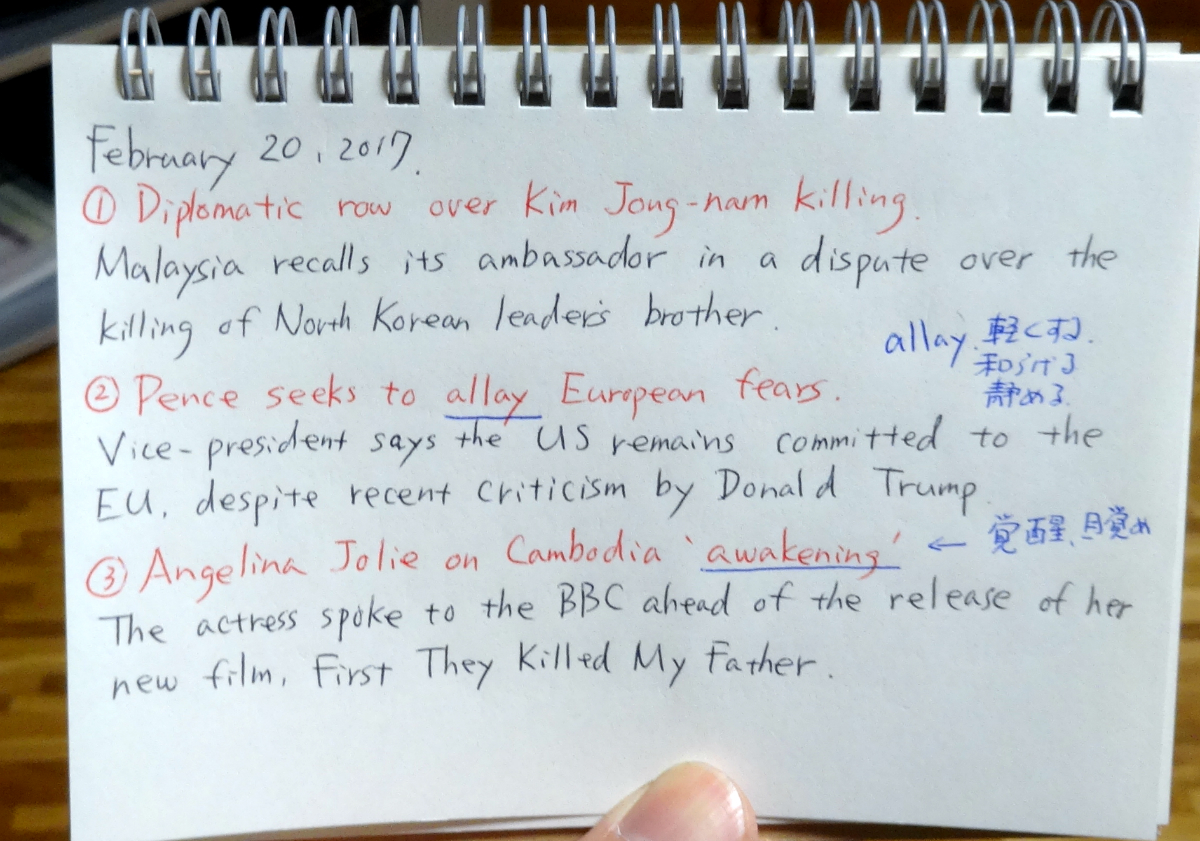 February 20, 2017.
① Diplomatic row over Kim Jong-nam killing.
Malaysia recalls its ambassador in a dispute over the
killing of North Korean leader's brother.
allay. 軽くする.
和らげる
静める.
② Pence seeks to allay European fears.
Vice-president says the US remains committed to the
EU, despite recent criticism by Donald Trump.
③ Angelina Jolie on Cambodia 'awakening' ← 覚醒、目覚め
The actress spoke to the BBC ahead of the release of her
new film, First They Killed My Father.